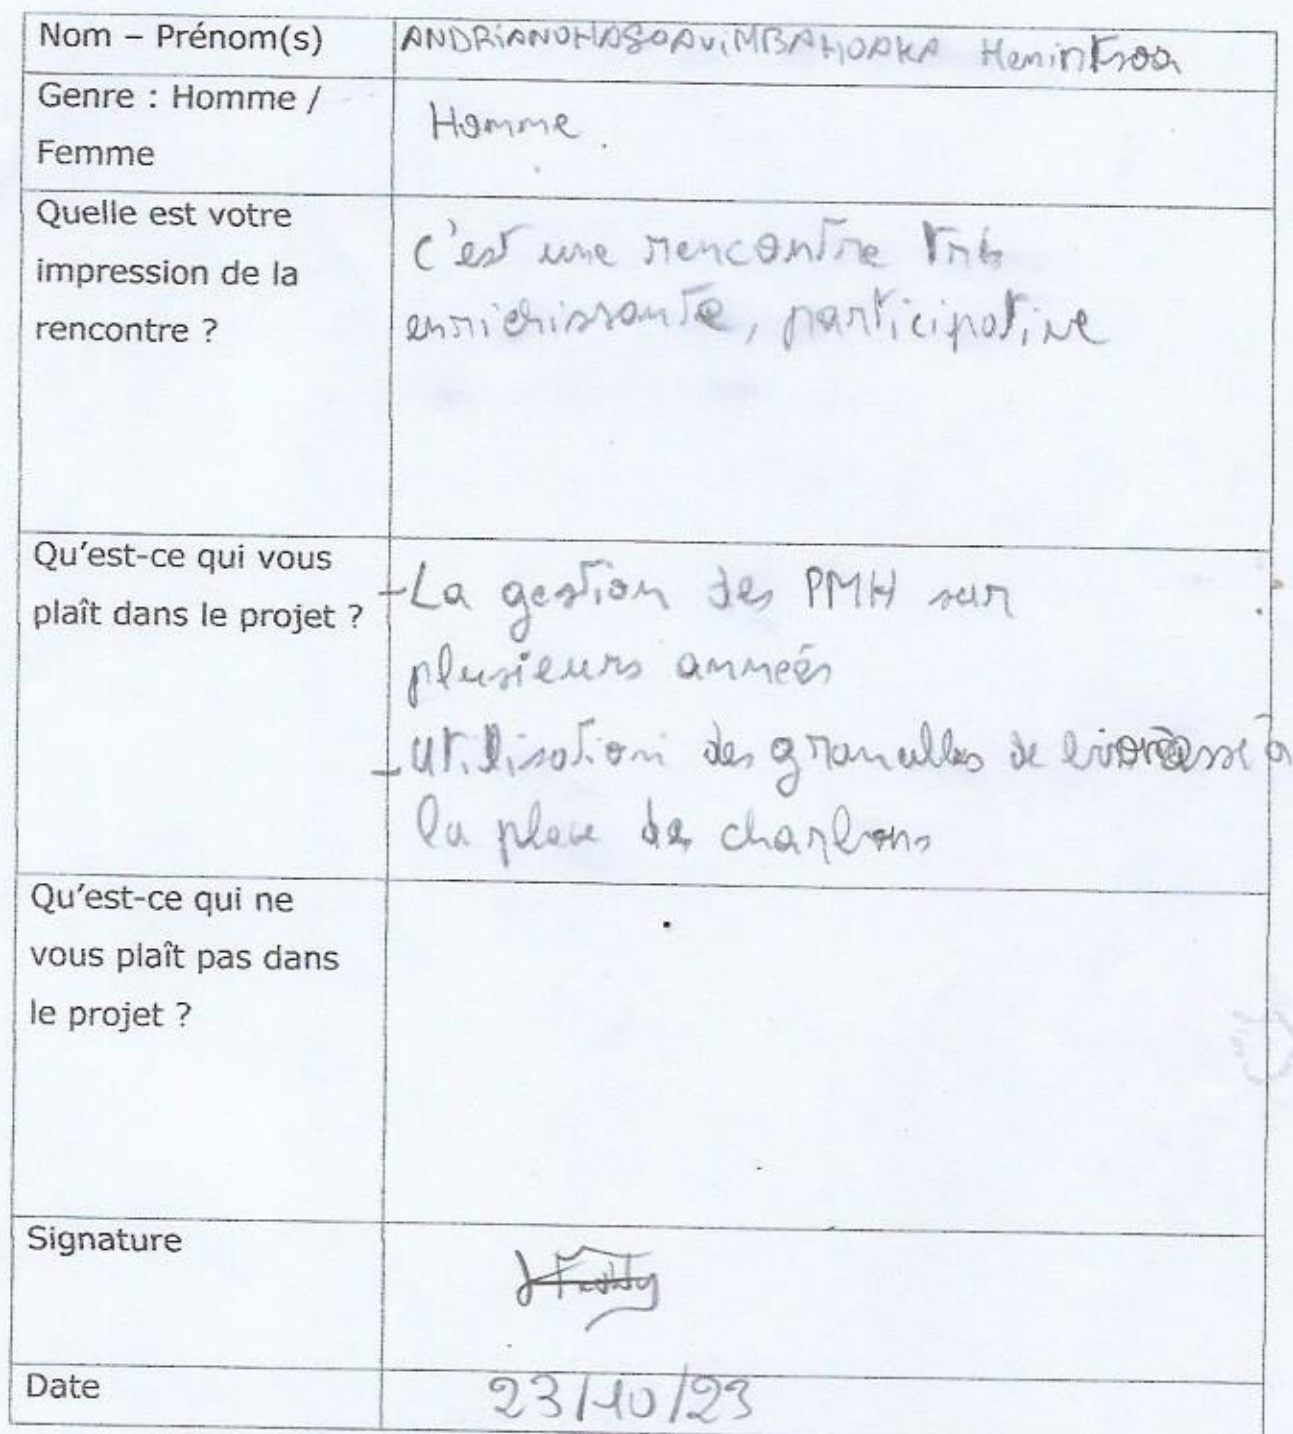 Nom – Prénom(s)
ANDRIANOHASOAVIMBAHOAKA Henintsoa
Genre : Homme /
Femme
Homme
Quelle est votre
impression de la
rencontre ?
C'est une rencontre très
enrichissante, participative
Qu'est-ce qui vous
plaît dans le projet ?
- La gestion des PMH sur
plusieurs années
- Utilisation des granulles de biomasse à
la place des charbons
Qu'est-ce qui ne
vous plaît pas dans
le projet ?
Signature
Date
23/10/23